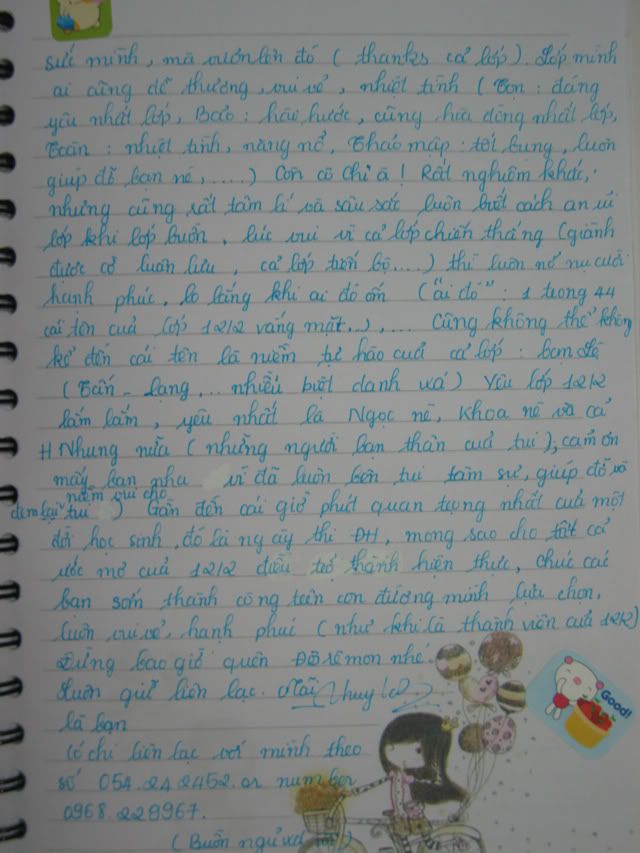 sức mình, mà vươn lên đó (thanks cả lớp). Lớp mình
ai cũng dễ thương, vui vẻ, nhiệt tình (Tọn: đáng
yêu nhất lớp, Bảo: hào hước, cũng hòa đồng nhất lớp,
Toàn: nhiệt tình, năng nổ, Thảo mập: tốt bụng, luôn
giúp đỡ bạn nè, .....) Còn cô Chi à! Rất nghiêm khắc,
nhưng cũng rất tâm lí và sâu sắc luôn biết cách an ủi
lớp khi lớp buồn, lúc vui vì cả lớp chiến thắng (giành
được cờ luân lưu, cả lớp tiến bộ,....) thì luôn nở nụ cười
hạnh phúc, lo lắng khi ai đó ốm ("ai đó": 1 trong 44
cái tên của lớp 12/2 vắng mặt..),.... Cũng không thể không
kể đến cái tên là niềm tự hào của cả lớp: bạn
(Tấn - Lang,... nhiều biệt danh wá) Yêu lớp 12/2
lắm lắm, yêu nhất là Ngọc nè, Khoa nè và cả
H.Nhung nữa (những người bạn thân của tui), cảm ơn
mấy bạn nha vì đã luôn bên tui tâm sự, giúp đỡ và
đem lại niềm vui cho tui) Gần đến cái giờ phút quan trọng nhất của một
đời học sinh, đó là ngày thi ĐH, mong sao cho tất cả
ước mơ của 12/2 điều trở thành hiện thực, chúc các
bạn sớm thành công trên con đường mình lựa chọn,
luôn vui vẻ, hạnh phúc (như khi là thành viên của 12/2)
Đừng bao giờ quên Đôrêmon nhé.
Luôn giữ liên lạc.
là bạn
Có chi liên lạc với mình theo
số 054.242452. or number
0968.228967.
(Buồn ngủ wá
Good!